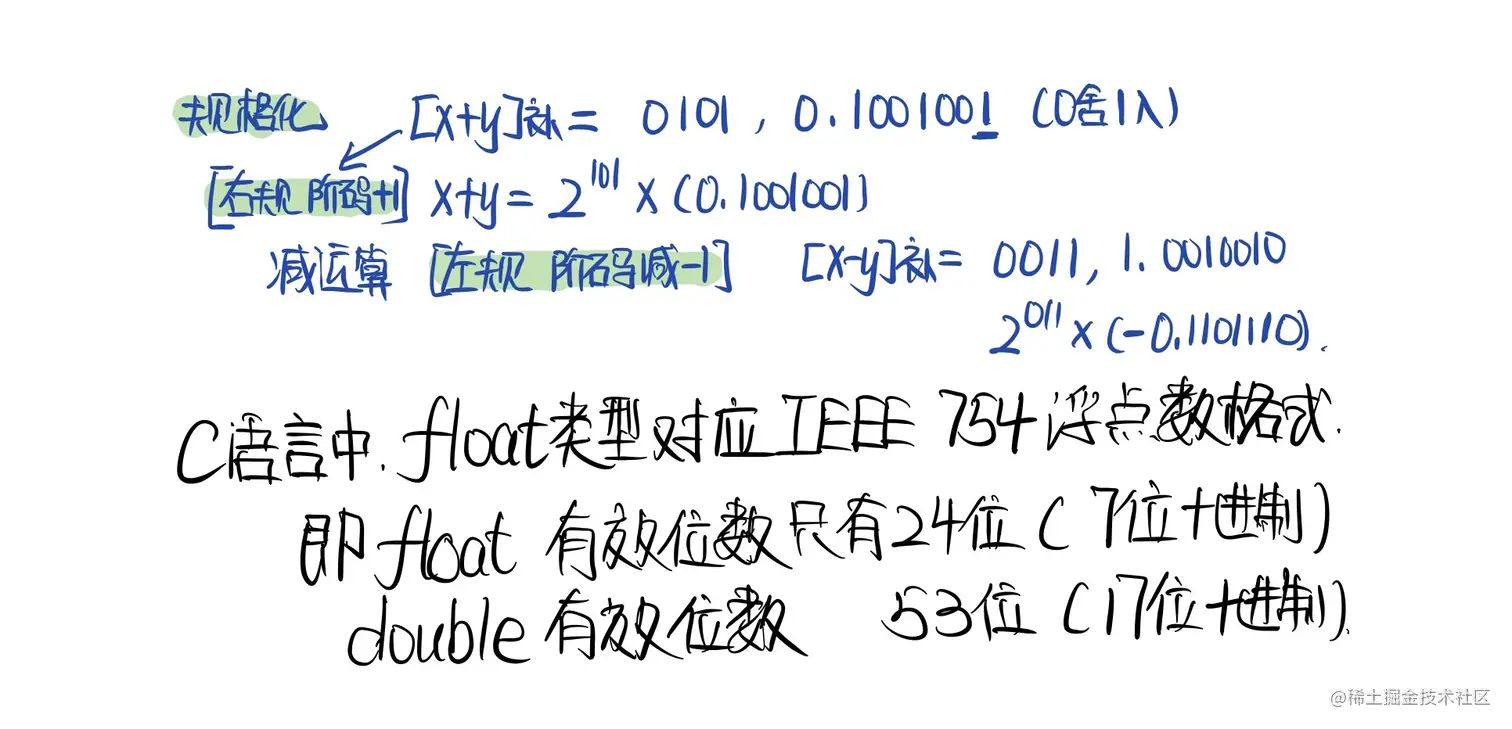 规格化 [x+y]补 = 0101, 0.1001001 (0舍1入)
[右规 阶码+1] x+y = 2^101 × (0.1001001)
减运算 [左规 阶码减-1] [x-y]补 = 0011, 1.0010010
2^011 × (-0.1101110).
C语言中. float类型对应IEEE 754浮点数格式.
即 float 有效位数只有24位 (7位十进制)
double 有效位数 53位 (17位十进制).
@稀土掘金技术社区